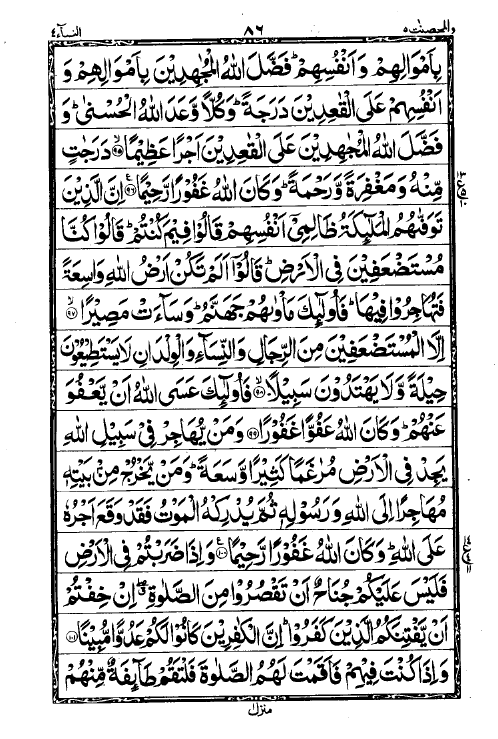 والمحصنٰت ٥ ٨٦ النسآء ٤
بِاَمْوَالِهِمْ وَاَنْفُسِهِمْ ؕ فَضَّلَ اللّٰهُ الْمُجٰهِدِيْنَ بِاَمْوَالِهِمْ وَ
اَنْفُسِهِمْ عَلَى الْقٰعِدِيْنَ دَرَجَةً ؕ وَكُلًّا وَّعَدَ اللّٰهُ الْحُسْنٰى ؕ وَ
فَضَّلَ اللّٰهُ الْمُجٰهِدِيْنَ عَلَى الْقٰعِدِيْنَ اَجْرًا عَظِيْمًا ۙ‏﴿۹۵﴾ دَرَجٰتٍ
مِّنْهُ وَمَغْفِرَةً وَّرَحْمَةً ؕ وَكَانَ اللّٰهُ غَفُوْرًا رَّحِيْمًا ﴿۹۶﴾ اِنَّ الَّذِيْنَ
تَوَفّٰىهُمُ الْمَلٰٓئِكَةُ ظَالِمِيْٓ اَنْفُسِهِمْ قَالُوْا فِيْمَ كُنْتُمْ ؕ قَالُوْا كُنَّا
مُسْتَضْعَفِيْنَ فِى الْاَرْضِ ؕ قَالُوْٓا اَلَمْ تَكُنْ اَرْضُ اللّٰهِ وَاسِعَةً
فَتُهَاجِرُوْا فِيْهَا ؕ فَاُولٰٓئِكَ مَاْوٰىهُمْ جَهَنَّمُ ؕ وَسَآءَتْ مَصِيْرًا ۙ﴿۹۷﴾
اِلَّا الْمُسْتَضْعَفِيْنَ مِنَ الرِّجَالِ وَالنِّسَآءِ وَالْوِلْدَانِ لَا يَسْتَطِيْعُوْنَ
حِيْلَةً وَّلَا يَهْتَدُوْنَ سَبِيْلًا ۙ﴿۹۸﴾ فَاُولٰٓئِكَ عَسَى اللّٰهُ اَنْ يَّعْفُوَ
عَنْهُمْ ؕ وَكَانَ اللّٰهُ عَفُوًّا غَفُوْرًا ﴿۹۹﴾ وَمَنْ يُّهَاجِرْ فِيْ سَبِيْلِ اللّٰهِ
يَجِدْ فِى الْاَرْضِ مُرٰغَمًا كَثِيْرًا وَّسَعَةً ؕ وَمَنْ يَّخْرُجْ مِنْۢ بَيْتِهٖ
مُهَاجِرًا اِلَى اللّٰهِ وَرَسُوْلِهٖ ثُمَّ يُدْرِكْهُ الْمَوْتُ فَقَدْ وَقَعَ اَجْرُهٗ
عَلَى اللّٰهِ ؕ وَكَانَ اللّٰهُ غَفُوْرًا رَّحِيْمًا ﴿۱۰۰﴾ وَاِذَا ضَرَبْتُمْ فِى الْاَرْضِ
فَلَيْسَ عَلَيْكُمْ جُنَاحٌ اَنْ تَقْصُرُوْا مِنَ الصَّلٰوةِ ۖ اِنْ خِفْتُمْ
اَنْ يَّفْتِنَكُمُ الَّذِيْنَ كَفَرُوْا ؕ اِنَّ الْكٰفِرِيْنَ كَانُوْا لَكُمْ عَدُوًّا مُّبِيْنًا ﴿۱۰۱﴾
وَاِذَا كُنْتَ فِيْهِمْ فَاَقَمْتَ لَهُمُ الصَّلٰوةَ فَلْتَقُمْ طَآئِفَةٌ مِّنْهُمْ
منزل